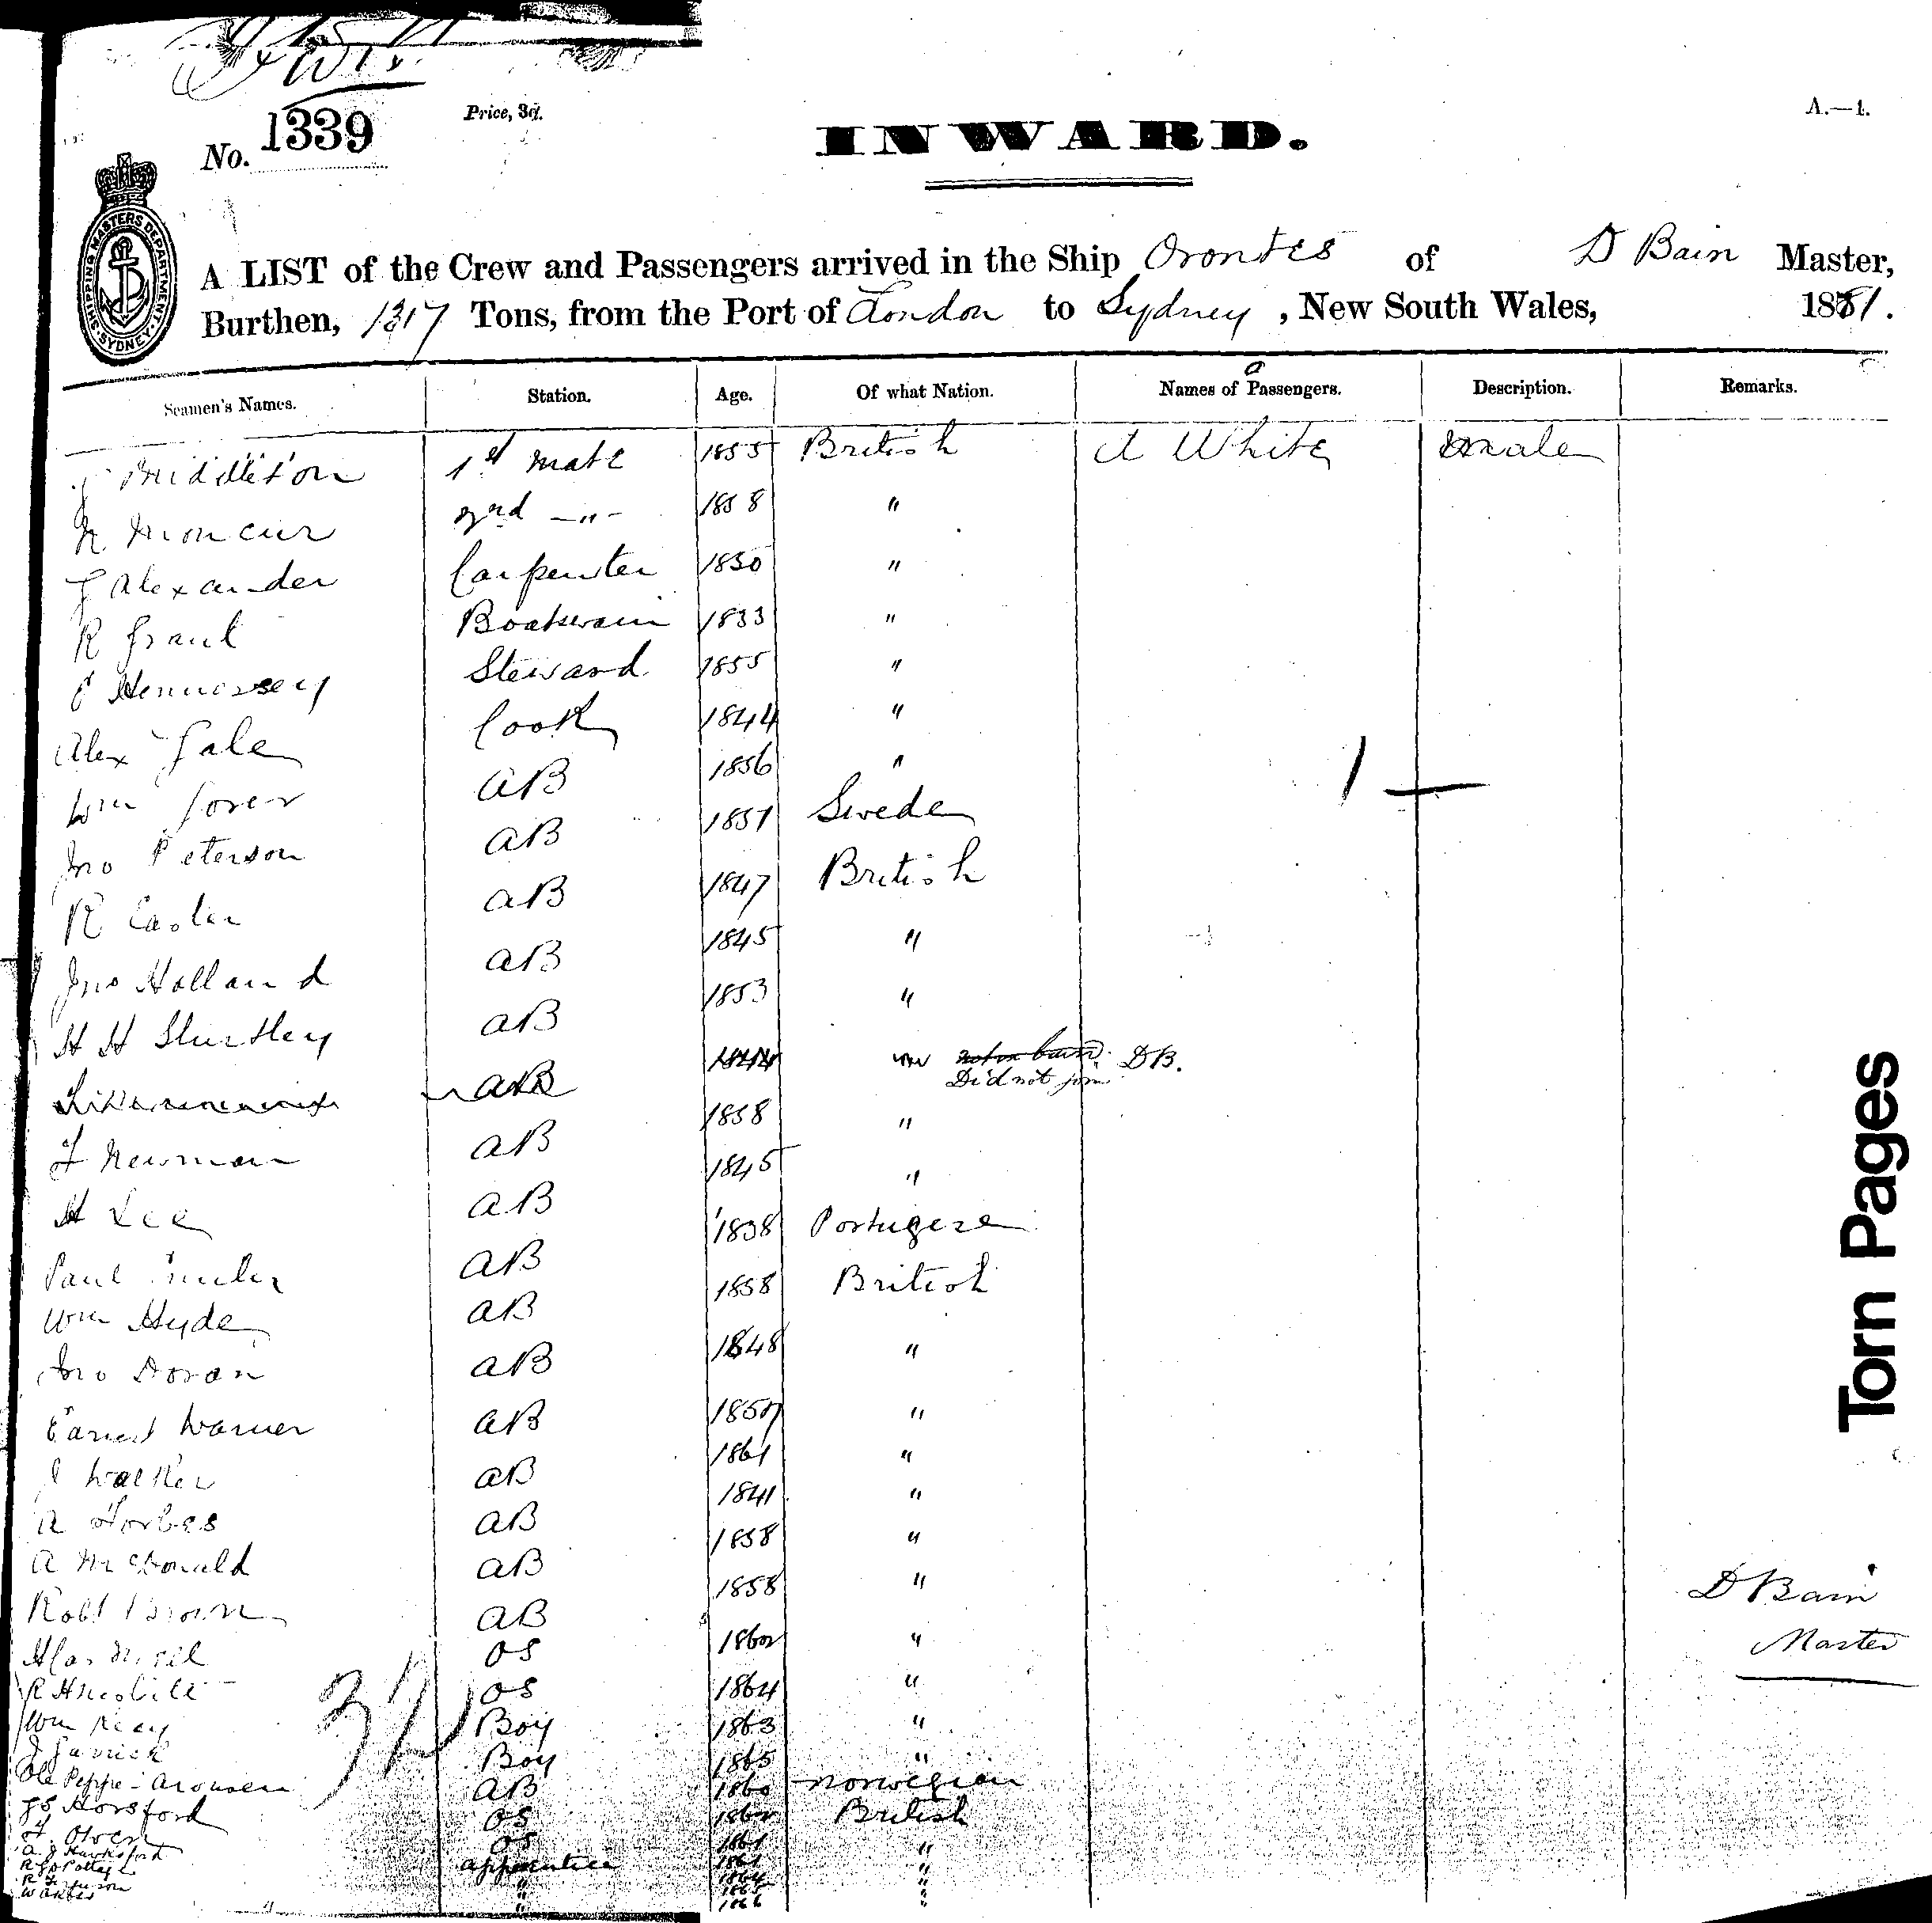 No. 1339
Price, 3d.
INWARD.
A.—1.
SHIPPING MASTERS DEPARTMENT SYDNEY
A LIST of the Crew and Passengers arrived in the Ship Orontes of D Bain Master,
Burthen, 1317 Tons, from the Port of London to Sydney, New South Wales, 1881.
Seamen's Names. Station. Age. Of what Nation. Names of Passengers. Description. Remarks.
J Middleton 1st mate 1855 British A White male
Moncur 2nd —"— 1858 "
J Alexander Carpenter 1830 "
R Grant Boatswain 1833 "
Hennessey Steward 1855 "
Alex Gale Cook 1844 "
Wm AB 1856 "
1 —
Jno Peterson AB 1851 Sweden
R AB 1847 British
Jno Holland AB 1845 "
H H AB 1853 "
AB 1844 " Did not join DB.
F Newman AB 1858 "
H Lee AB 1845 "
Paul AB 1838 Portugese
Wm Hyde AB 1858 British
Jno Doran AB 1848 "
Earnest Warner AB 1857 "
J Walker AB 1861 "
A Forbes AB 1841 "
A McDonald AB 1858 "
Robt Brown AB 1858 "
OS 1862 "
R H Nesbitt OS 1864 "
Wm Boy 1863 "
J Garrick Boy 1865 "
Ole Peppe AB 1860 Norwegian
Horsford OS 1862 British
F. Owen OS 1861 "
A. J Hawksford apprentice 1861 "
R "
R "
W " 1866 "
32
D Bain
Master
Torn Pages